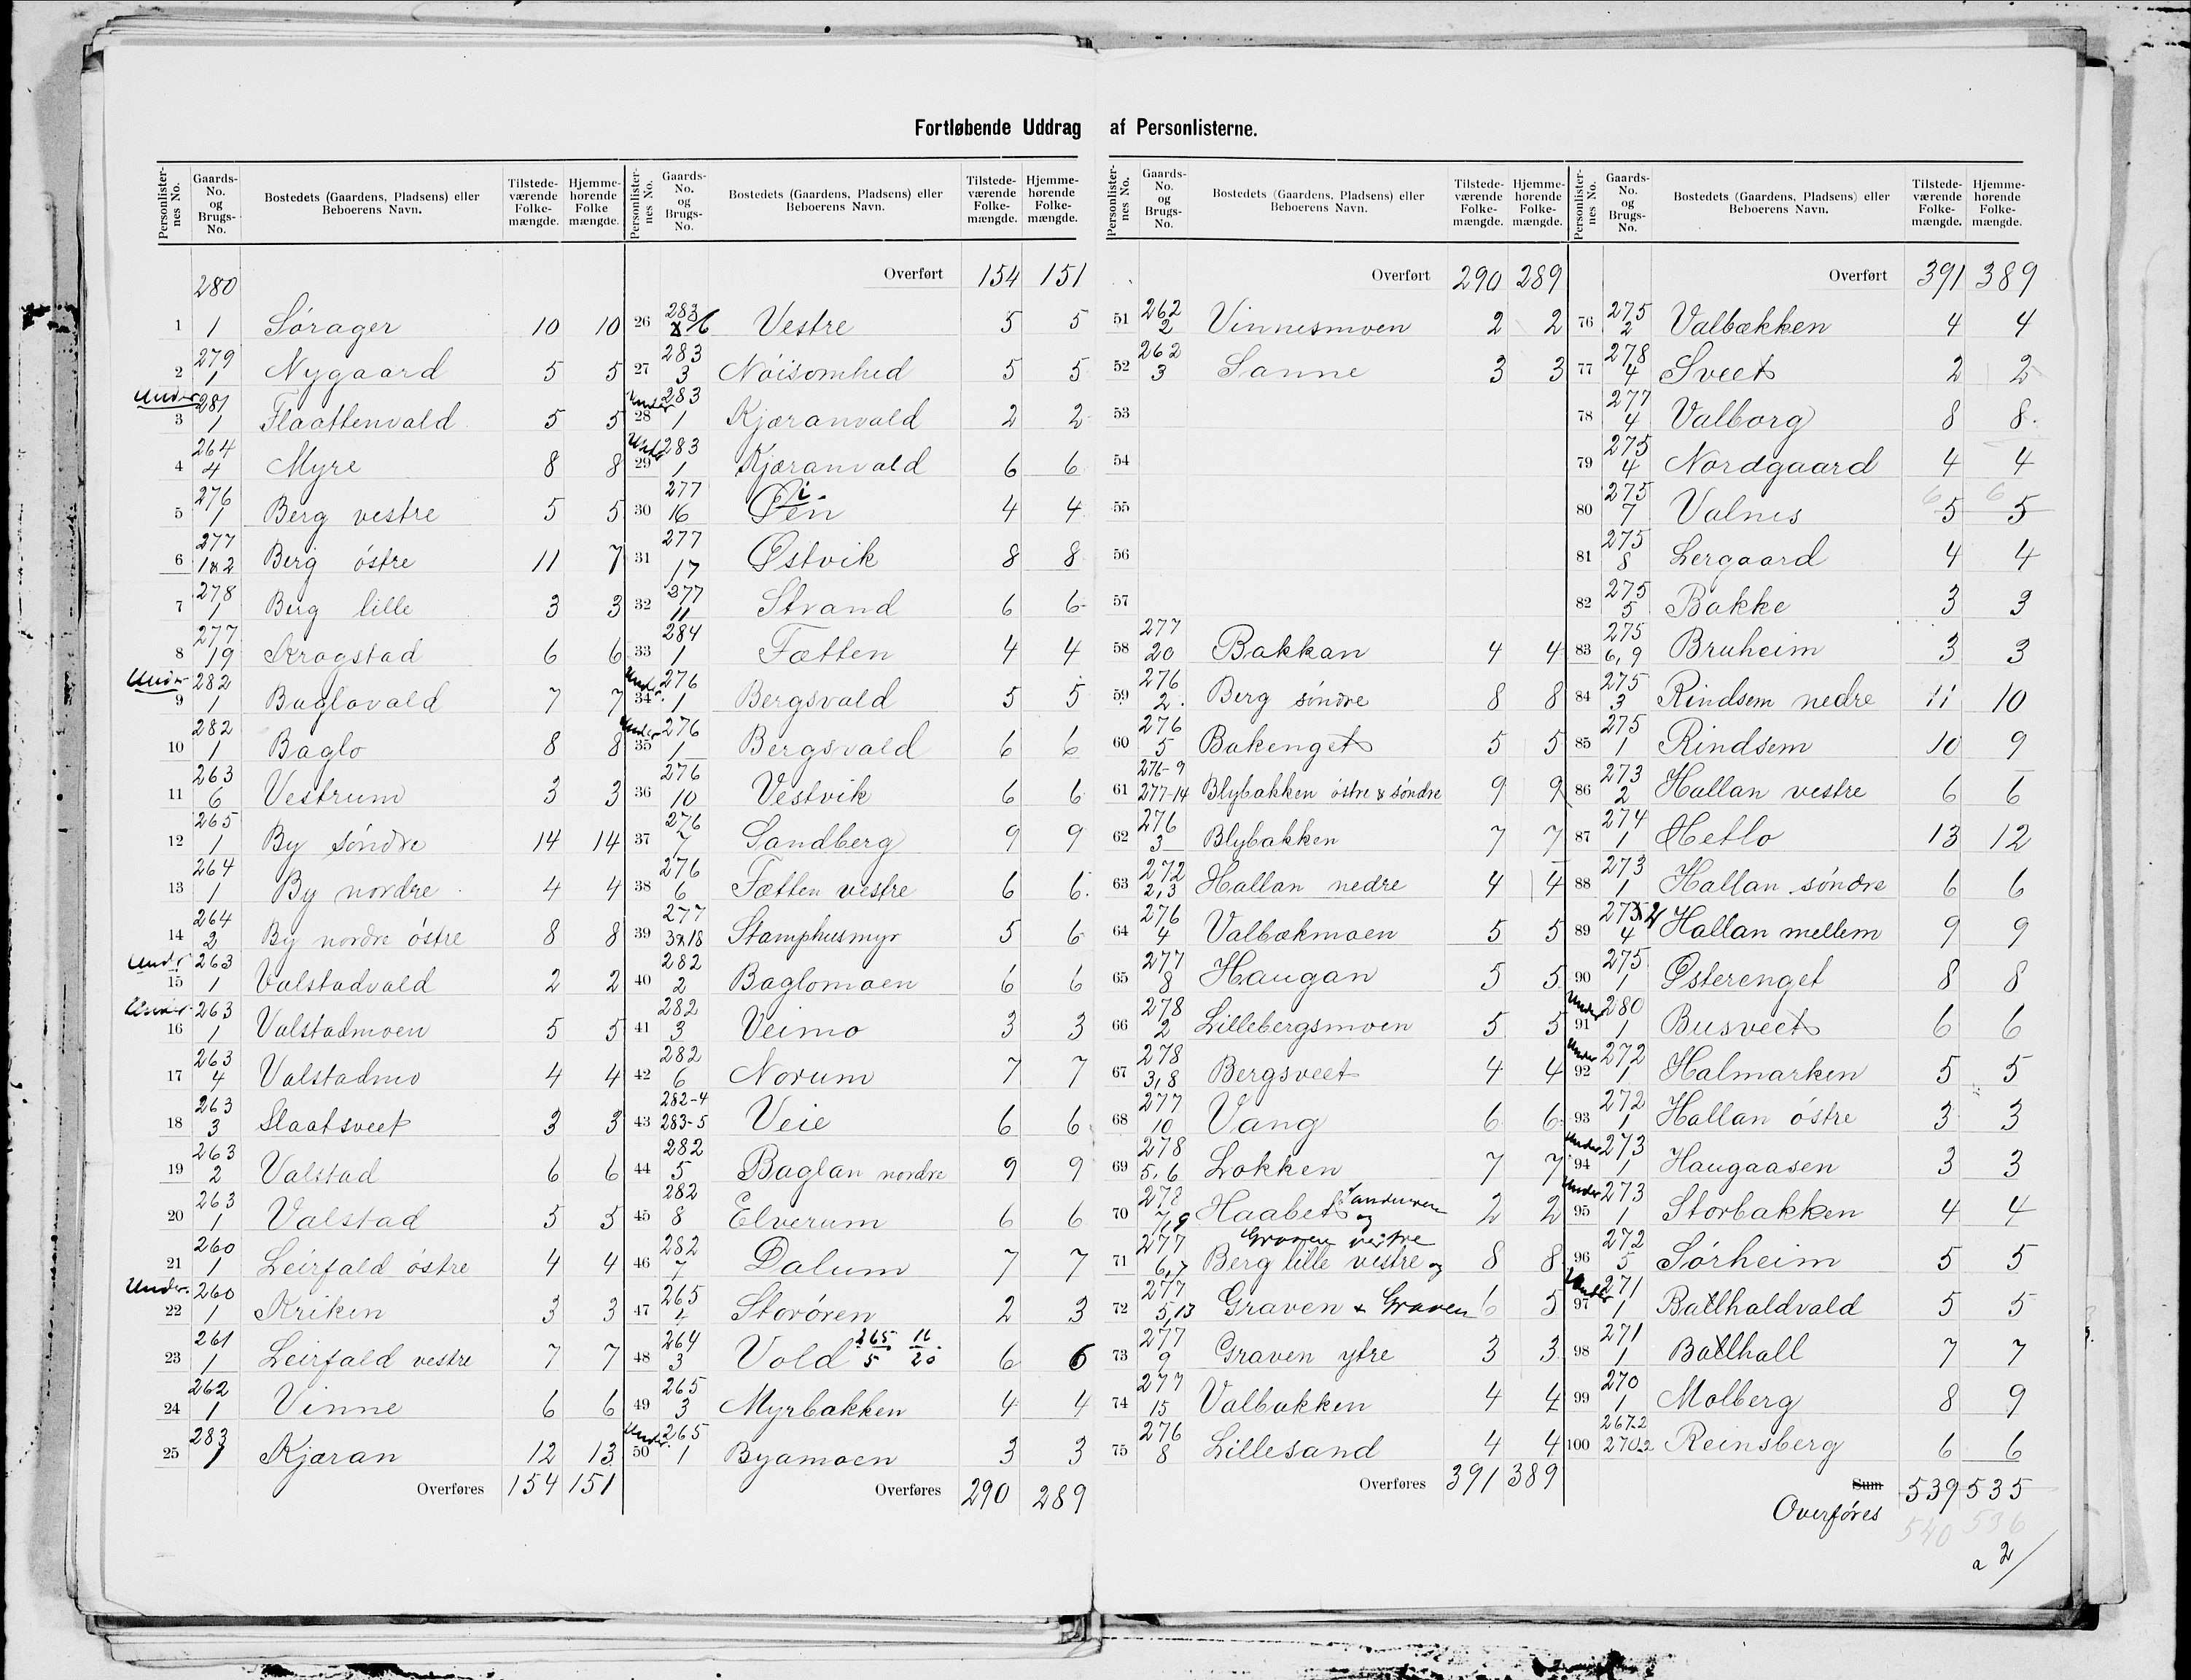 Fortløbende Uddrag af Personlisterne.
Personlisternes No. Gaards-No. og Brugs-No. Bostedets (Gaardens, Pladsens) eller Beboerens Navn. Tilstedeværende Folkemængde. Hjemmehørende Folkemængde.
1 280 1 Sörager 10 10
2 279 1 Nygaard 5 5
3 Under 281 1 Flaattenvald 5 5
4 264 4 Myre 8 8
5 276 1 Berg vestre 5 5
6 277 1&2 Berg östre 11 7
7 278 1 Berg lille 3 3
8 277 19 Kragstad 6 6
9 Under 282 1 Baglovald 7 7
10 282 1 Baglo 8 8
11 263 6 Vestrum 3 3
12 265 1 By söndre 14 14
13 264 1 By nordre 4 4
14 264 2 By nordre östre 8 8
15 Under 263 1 Valstadvald 2 2
16 Under 263 1 Valstadmoen 5 5
17 263 4 Valstadmo 4 4
18 263 3 Slaatsveet 3 3
19 263 2 Valstad 6 6
20 263 1 Valstad 5 5
21 260 1 Leirfald östre 4 4
22 Under 260 1 Kriken 3 3
23 261 1 Leirfald vestre 7 7
24 262 1 Vinne 6 6
25 283 1 Kjæran 12 13
Overføres 154 151
Personlisternes No. Gaards-No. og Brugs-No. Bostedets (Gaardens, Pladsens) eller Beboerens Navn. Tilstedeværende Folkemængde. Hjemmehørende Folkemængde.
Overført 154 151
26 283 6 Vestre 5 5
27 283 3 Nöisomhed 5 5
28 Under 283 1 Kjæranvald 2 2
29 Under 283 1 Kjæranvald 6 6
30 277 16 Øien 4 4
31 277 17 Østvik 8 8
32 277 11 Strand 6 6
33 284 1 Fætten 4 4
34 Under 276 1 Bergsvald 5 5
35 Under 276 1 Bergsvald 6 6
36 276 10 Vestvik 6 6
37 276 7 Sandberg 9 9
38 276 6 Fætten vestre 6 6
39 277 3&18 Stamphusmyr 5 6
40 282 2 Baglomoen 6 6
41 282 3 Veimo 3 3
42 282 6 Norum 7 7
43 282-4 283-5 Veie 6 6
44 282 5 Baglan nordre 9 9
45 282 8 Elverum 6 6
46 282 7 Dalum 7 7
47 265 4 Storören 2 3
48 264 3 Vold 265 5 11 20 6 6
49 265 3 Myrbakken 4 4
50 Under 265 1 Byamoen 3 3
Overføres 290 289
Personlisternes No. Gaards-No. og Brugs-No. Bostedets (Gaardens, Pladsens) eller Beboerens Navn. Tilstedeværende Folkemængde. Hjemmehørende Folkemængde.
Overført 290 289
51 262 2 Vinnesmoen 2 2
52 262 3 Sanne 3 3
53
54
55
56
57
58 277 20 Bakkan 4 4
59 276 2 Berg söndre 8 8
60 276 5 Bakenget 5 5
61 276-9 277-14 Blybakken östre & söndre 9 9
62 276 3 Blybakken 7 7
63 272 2,3 Hallan nedre 4 4
64 276 4 Valbækmoen 5 5
65 277 8 Haugan 5 5
66 278 2 Lillebergsmoen 5 5
67 278 3,8 Bergsveet 4 4
68 277 10 Vang 6 6
69 278 5,6 Lokken 7 7
70 278 7,9 Haabet og 2 2
71 277 6,7 Berg lille vestre og Graven vestre 8 8
72 277 5,13 Graven & Graven 6 5
73 277 9 Graven ytre 3 3
74 277 15 Valbakken 4 4
75 276 8 Lillesand 4 4
Overføres 391 389
Personlisternes No. Gaards-No. og Brugs-No. Bostedets (Gaardens, Pladsens) eller Beboerens Navn. Tilstedeværende Folkemængde. Hjemmehørende Folkemængde.
Overført 391 389
76 275 2 Valbækken 4 4
77 278 4 Sveet 2 2
78 277 4 Valborg 8 8
79 275 4 Nordgaard 4 4
80 275 7 Valnes 6 5 6 5
81 275 8 Lergaard 4 4
82 275 5 Bakke 3 3
83 275 6,9 Bruheim 3 3
84 275 3 Rindsem nedre 11 10
85 275 1 Rindsem 10 9
86 273 2 Hallan vestre 6 6
87 274 1 Hetlo 13 12
88 273 1 Hallan söndre 6 6
89 272 4 Hallan mellem 9 9
90 275 1 Østerenget 8 8
91 Under 280 1 Busveet 6 6
92 Under 272 1 Halmarken 5 5
93 272 1 Hallan östre 3 3
94 Under 273 1 Haugaasen 3 3
95 Under 273 1 Storbakken 4 4
96 272 5 Sörheim 5 5
97 Under 271 1 Balhaldvald 5 5
98 271 1 Balhall 7 7
99 270 1 Molberg 8 9
100 267-2 270-2 Reinsberg 6 6
Sum 539 535
Overföres 540 536
a 2/